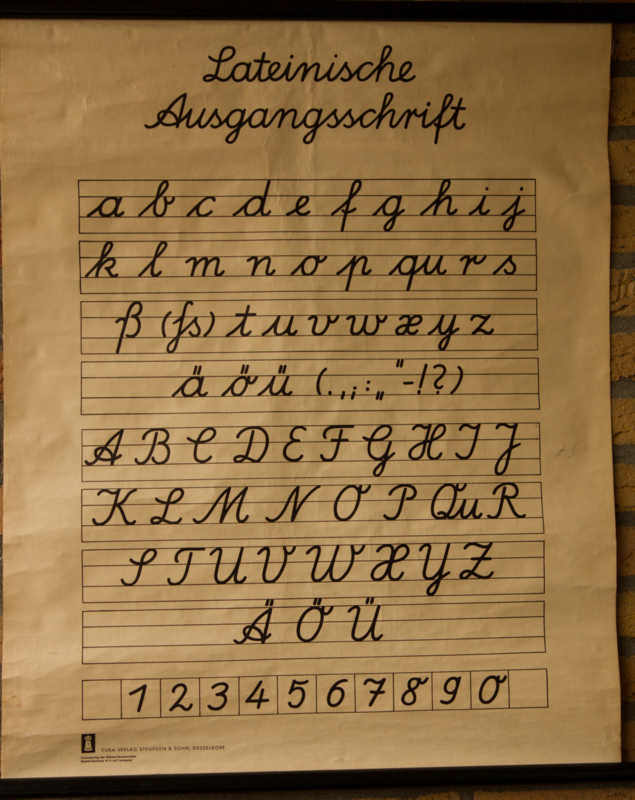 Lateinische
Ausgangsschrift
a b c d e f g h i j
k l m n o p qu r s
ß (ſs) t u v w x y z
ä ö ü (.,;:„ "-!?)
A B C D E F G H I J
K L M N O P Qu R
S T U V W X Y Z
Ä Ö Ü
1 2 3 4 5 6 7 8 9 0
TURM-VERLAG STEUFGEN & SOHN, DÜSSELDORF